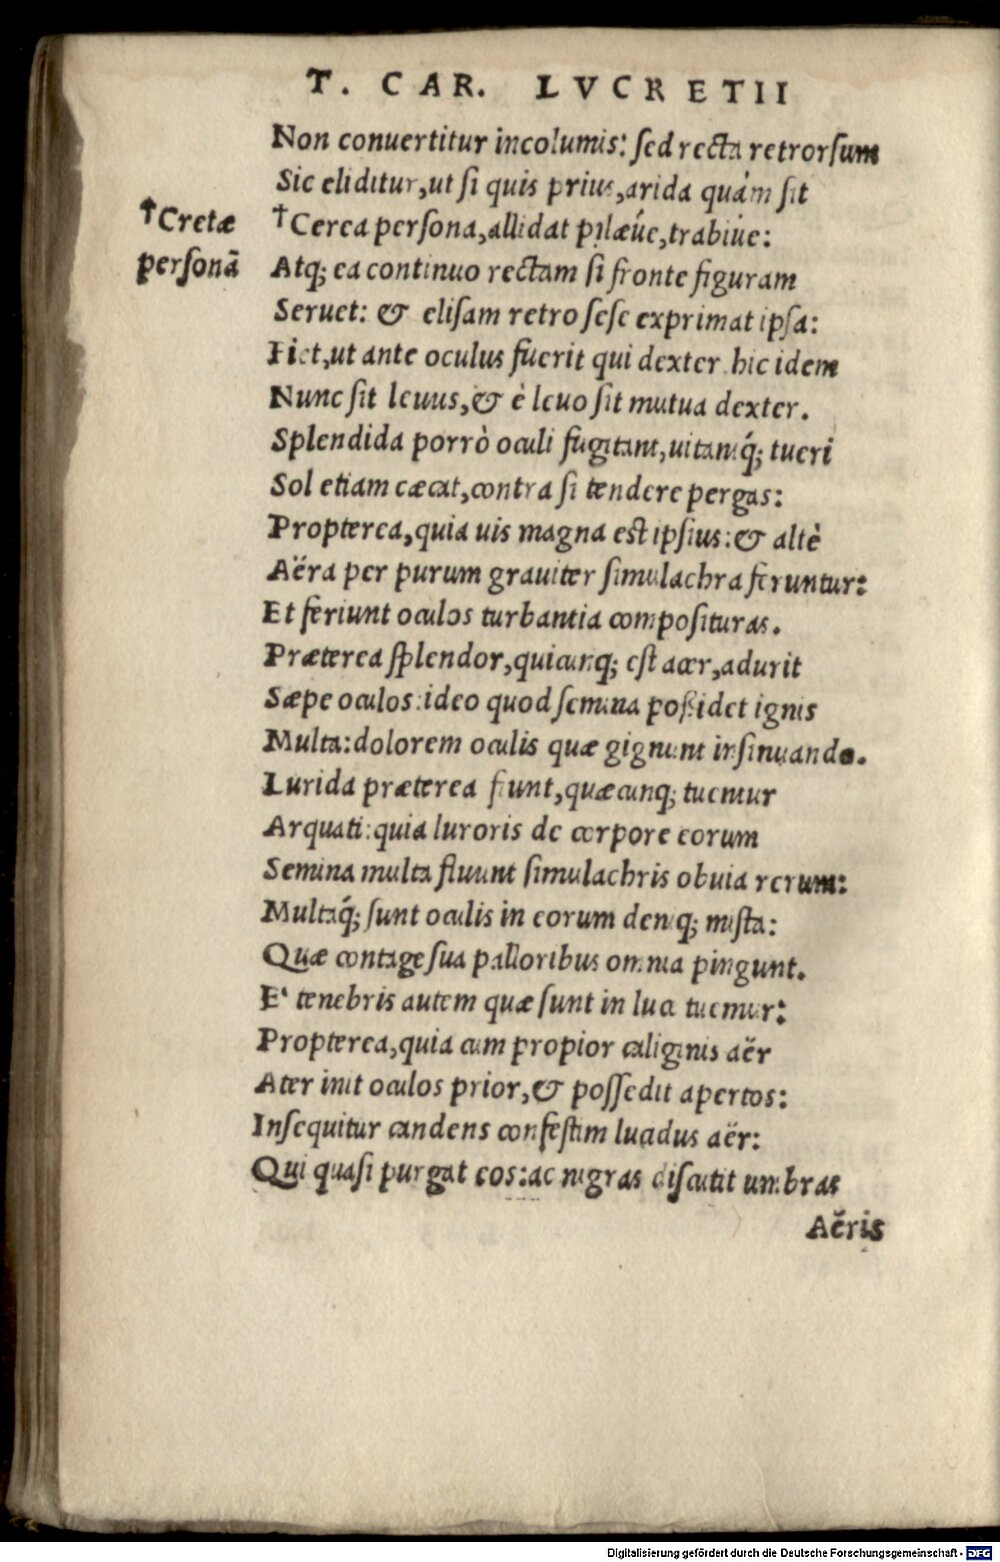 T. CAR. LVCRETII
Non conuertitur incolumis: ſed recta retrorſum
Sic eliditur, ut ſi quis prius, arida quàm ſit
†Cretæ
personā
†Cerea perſona, allidat pilæúe, trabiúe:
Atq; ea continuo rectam ſi fronte figuram
Seruet: & eliſam retro ſeſe exprimat ipſa:
Fiet, ut ante oculus fuerit qui dexter hic idem
Nunc ſit leuus, & è leuo ſit mutua dexter.
Splendida porrò oculi fugitant, uitamq́; tueri
Sol etiam cæcat, contra ſi tendere pergas:
Propterea, quia uis magna est ipſius: & altè
Aëra per purum grauiter ſimulachra feruntur:
Et feriunt oculos turbantia compoſituras.
Præterea ſplendor, quicunq; est acer, adurit
Sæpe oculos: ideo quod ſemina poßidet ignis
Multa: dolorem oculis quæ gignunt inſinuando.
Lurida præterea fiunt, quæcunq; tuemur
Arquati: quia luroris de corpore eorum
Semina multa fluunt ſimulachris obuia rerum:
Multaq́; ſunt oculis in eorum deniq; miſta:
Quæ contage ſua palloribus omnia pingunt.
E' tenebris autem quæ ſunt in luce tuemur:
Propterea, quia cum propior caliginis aër
Ater init oculos prior, & poſſedit apertos:
Inſequitur candens confeſtim lucidus aër:
Qui quaſi purgat eos: ac nigras diſcutit umbras
Aëris
Digitalisierung gefördert durch die Deutsche Forschungsgemeinschaft - DFG